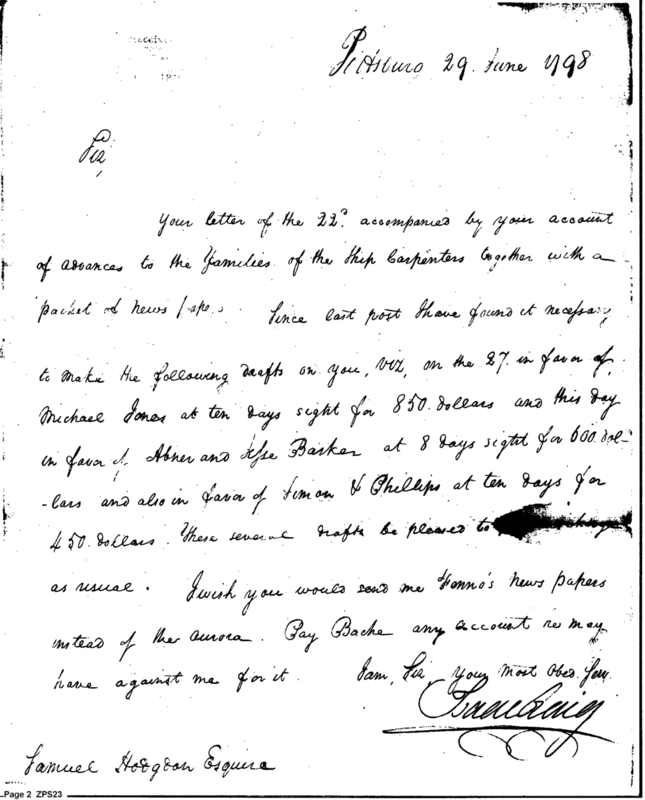 Pittsburg 29. June 1798
Sir,
Your letter of the 22d. accompanied by your account
of advances to the Families of the Ship Carpenters together with a
packet of news papers. Since last post I have found it necessary
to make the following drafts on you, Viz, on the 27. in favor of
Michael Jones at ten days sight for 850. dollars and this day
in favor of Abner and Jesse Barker at 8 days sight for 600. dol-
-lars and also in favor of Simon & Phillips at ten days for
450. dollars. These several drafts be pleased to
as usual. I wish you would send me Fenno's news papers
instead of the aurora. Pay Bache any account he may
have against me for it. I am, Sir, your most Obed. Serv.
Isaac Craig
Samuel Hodgdon Esquire
Page 2 ZPS23